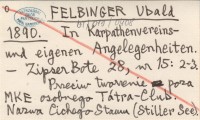 FELBINGER Ubald
1890. In Karpathenvereins-
und eigenen Angelegenheiten.
— Zipser Bote 28, nr 15: 2-3.
Przeciw tworzeniu poza
MKE osobnego Tátra-Club.
Nazwa Cichego Stawu (Stiller See).